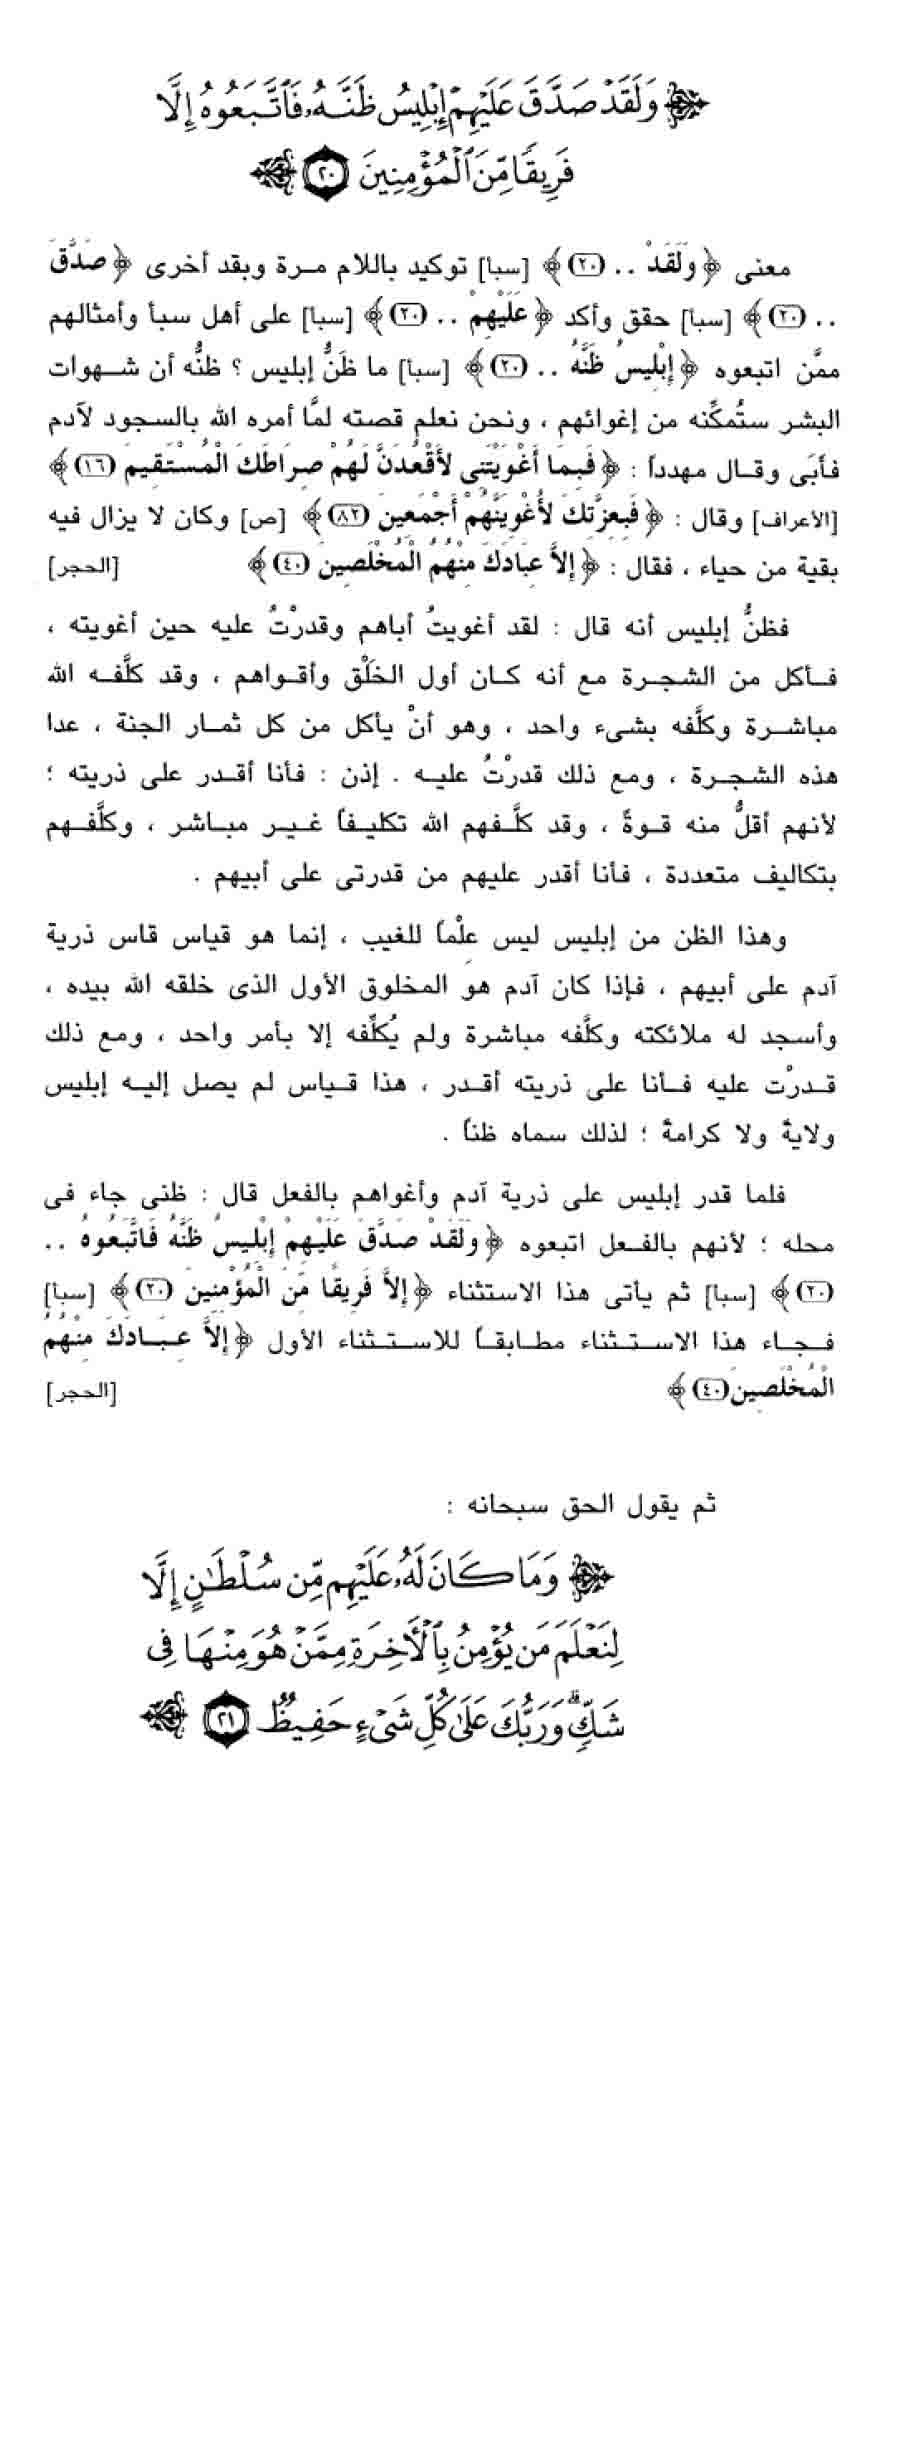 ﴿ وَلَقَدْ صَدَّقَ عَلَيْهِمْ إِبْلِيسُ ظَنَّهُ فَاتَّبَعُوهُ إِلَّا
فَرِيقًا مِّنَ الْمُؤْمِنِينَ ٢٠ ﴾
معنى ﴿ وَلَقَدْ .. (٢٠) ﴾ [سبأ] توكيد باللام مرة وبقد أخرى ﴿ صَدَّقَ
.. (٢٠) ﴾ [سبأ] حقق وأكد ﴿ عَلَيْهِمْ .. (٢٠) ﴾ [سبأ] على أهل سبأ وأمثالهم
ممَّن اتبعوه ﴿ إِبْلِيسُ ظَنَّهُ .. (٢٠) ﴾ [سبأ] ما ظَنُّ إبليس ؟ ظنُّه أن شهوات
البشر ستُمكِّنه من إغوائهم ، ونحن نعلم قصته لمَّا أمره الله بالسجود لآدم
فأبَى وقال مهدداً : ﴿ فَبِمَا أَغْوَيْتَنِى لأَقْعُدَنَّ لَهُمْ صِرَاطَكَ الْمُسْتَقِيمَ (١٦) ﴾
[الأعراف] وقال : ﴿ فَبِعِزَّتِكَ لأُغْوِيَنَّهُمْ أَجْمَعِينَ (٨٢) ﴾ [ص] وكان لا يزال فيه
بقية من حياء ، فقال : ﴿ إِلاَّ عِبَادَكَ مِنْهُمُ الْمُخْلَصِينَ (٤٠) ﴾ [الحجر]
فظنُّ إبليس أنه قال : لقد أغويتُ أباهم وقدرْتُ عليه حين أغويته ،
فأكل من الشجرة مع أنه كان أول الخَلْق وأقواهم ، وقد كلَّفه الله
مباشرة وكلَّفه بشىء واحد ، وهو أنْ يأكل من كل ثمار الجنة ، عدا
هذه الشجرة ، ومع ذلك قدرْتُ عليه . إذن : فأنا أقدر على ذريته ؛
لأنهم أقلُّ منه قوةً ، وقد كلَّفهم الله تكليفاً غير مباشر ، وكلَّفهم
بتكاليف متعددة ، فأنا أقدر عليهم من قدرتى على أبيهم .
وهذا الظن من إبليس ليس عِلْماً للغيب ، إنما هو قياس قاس ذرية
آدم على أبيهم ، فإذا كان آدم هو المخلوق الأول الذى خلقه الله بيده ،
وأسجد له ملائكته وكلَّفه مباشرة ولم يُكلِّفه إلا بأمر واحد ، ومع ذلك
قدرْت عليه فأنا على ذريته أقدر ، هذا قياس لم يصل إليه إبليس
ولايةً ولا كرامةً ؛ لذلك سماه ظناً .
فلما قدر إبليس على ذرية آدم وأغواهم بالفعل قال : ظنى جاء فى
محله ؛ لأنهم بالفعل اتبعوه ﴿ وَلَقَدْ صَدَّقَ عَلَيْهِمْ إِبْلِيسُ ظَنَّهُ فَاتَّبَعُوهُ ..
(٢٠) ﴾ [سبأ] ثم يأتى هذا الاستثناء ﴿ إِلاَّ فَرِيقًا مِّنَ الْمُؤْمِنِينَ (٢٠) ﴾ [سبأ]
فجاء هذا الاستثناء مطابقاً للاستثناء الأول ﴿ إِلاَّ عِبَادَكَ مِنْهُمُ
الْمُخْلَصِينَ (٤٠) ﴾ [الحجر]
ثم يقول الحق سبحانه :
﴿ وَمَا كَانَ لَهُ عَلَيْهِم مِّن سُلْطَانٍ إِلَّا
لِنَعْلَمَ مَن يُؤْمِنُ بِالْآخِرَةِ مِمَّنْ هُوَ مِنْهَا فِى
شَكٍّ ۗ وَرَبُّكَ عَلَىٰ كُلِّ شَىْءٍ حَفِيظٌ ٢١ ﴾